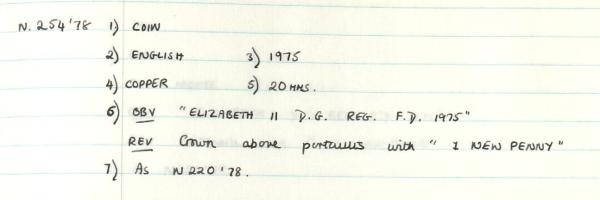 N. 254 '78 1) COIN
2) ENGLISH 3) 1975
4) COPPER 5) 20 MMS.
6) OBV "ELIZABETH II D.G. REG. F.D. 1975"
REV Crown above portcullis with "1 NEW PENNY"
7) As N 220 '78.